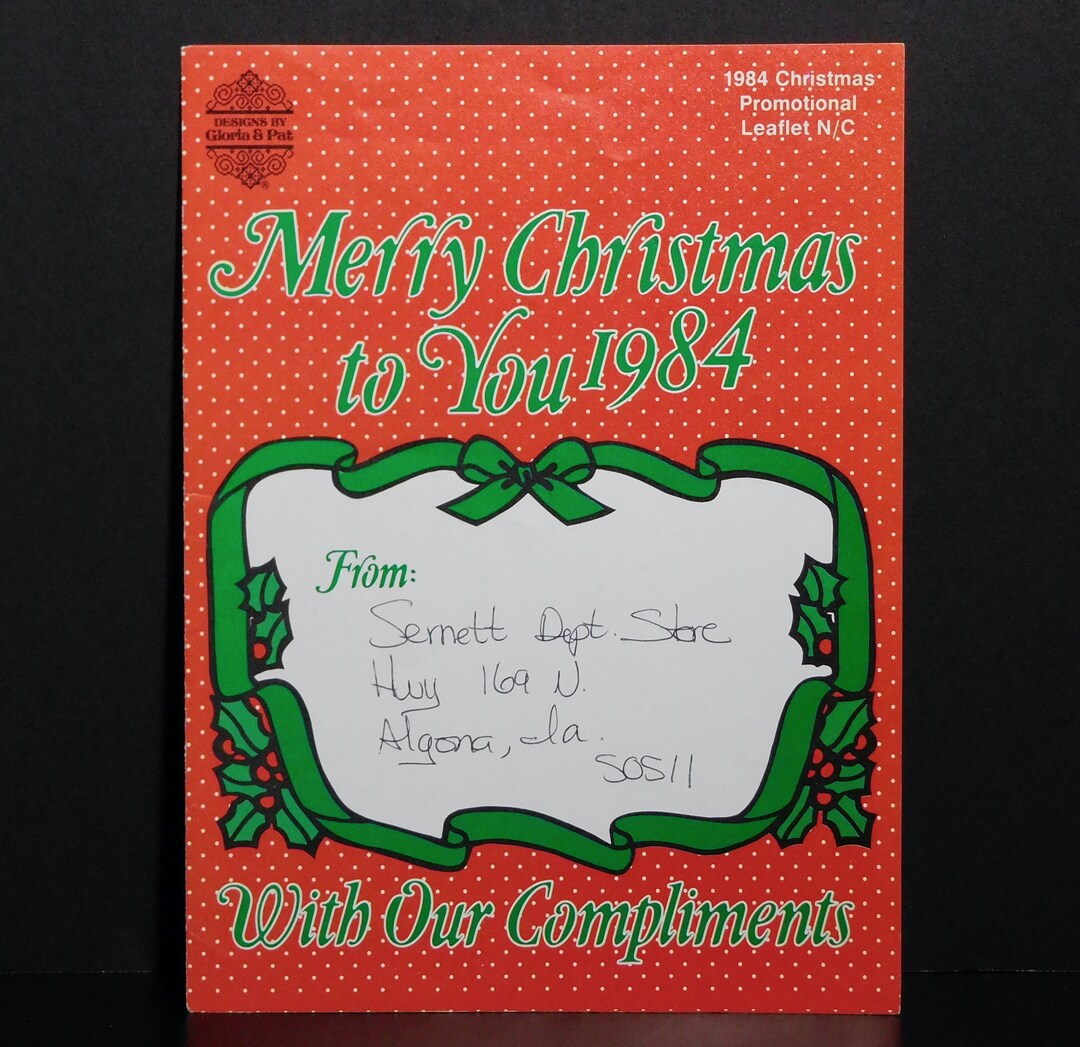 DESIGNS BY
Gloria & Pat
®
1984 Christmas
Promotional
Leaflet N/C
Merry Christmas
to You 1984
From:
Sernett Dept. Store
Hwy 169 N.
Algona, Ia.
50511
With Our Compliments